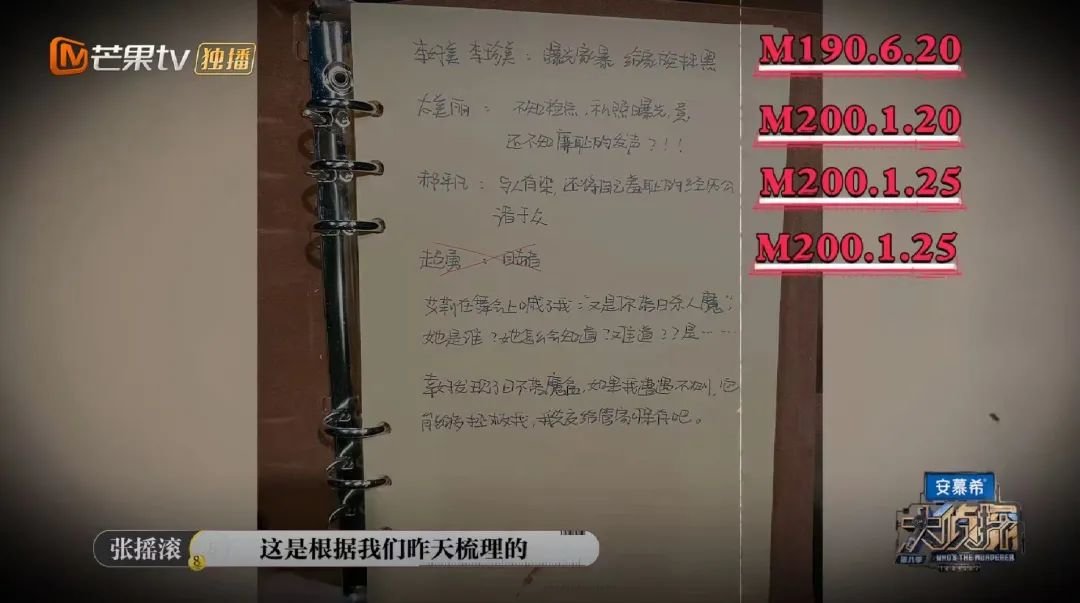 芒果tv 独播
李好美 李珍美：曝光家暴 给家庭抹黑
M190.6.20
不知检点，私照曝光，竟
M200.1.20
还不知廉耻的发声？！！
郝平凡：与人有染，还将自己羞耻的经历公
M200.1.25
诸于众
赵勇：目击者
M200.1.25
艾莉在舞会上喊了我：“又是你，落日杀人魔”
她是谁？她怎么会知道？难道？？是……
幸好发现了日不落魔盒，如果我遭遇不测，它
能够拯救我，我交给管家保存吧。
安慕希
大侦探
第八季 WHO'S THE MURDERER
张摇滚 8 这是根据我们昨天梳理的